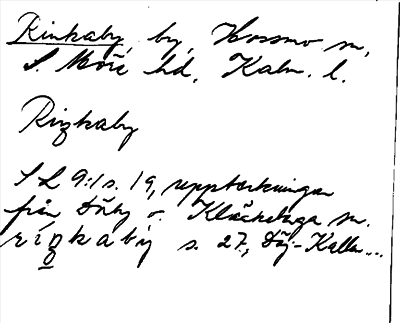 Rinkaby, by, Hossmo sn,
S. Möre hd, Kalm. l.
Rinkaby
SL 9:1 s. 19, uppteckningar
från Dörby o. Kläckeberga sn.
rínkabý s. 27,